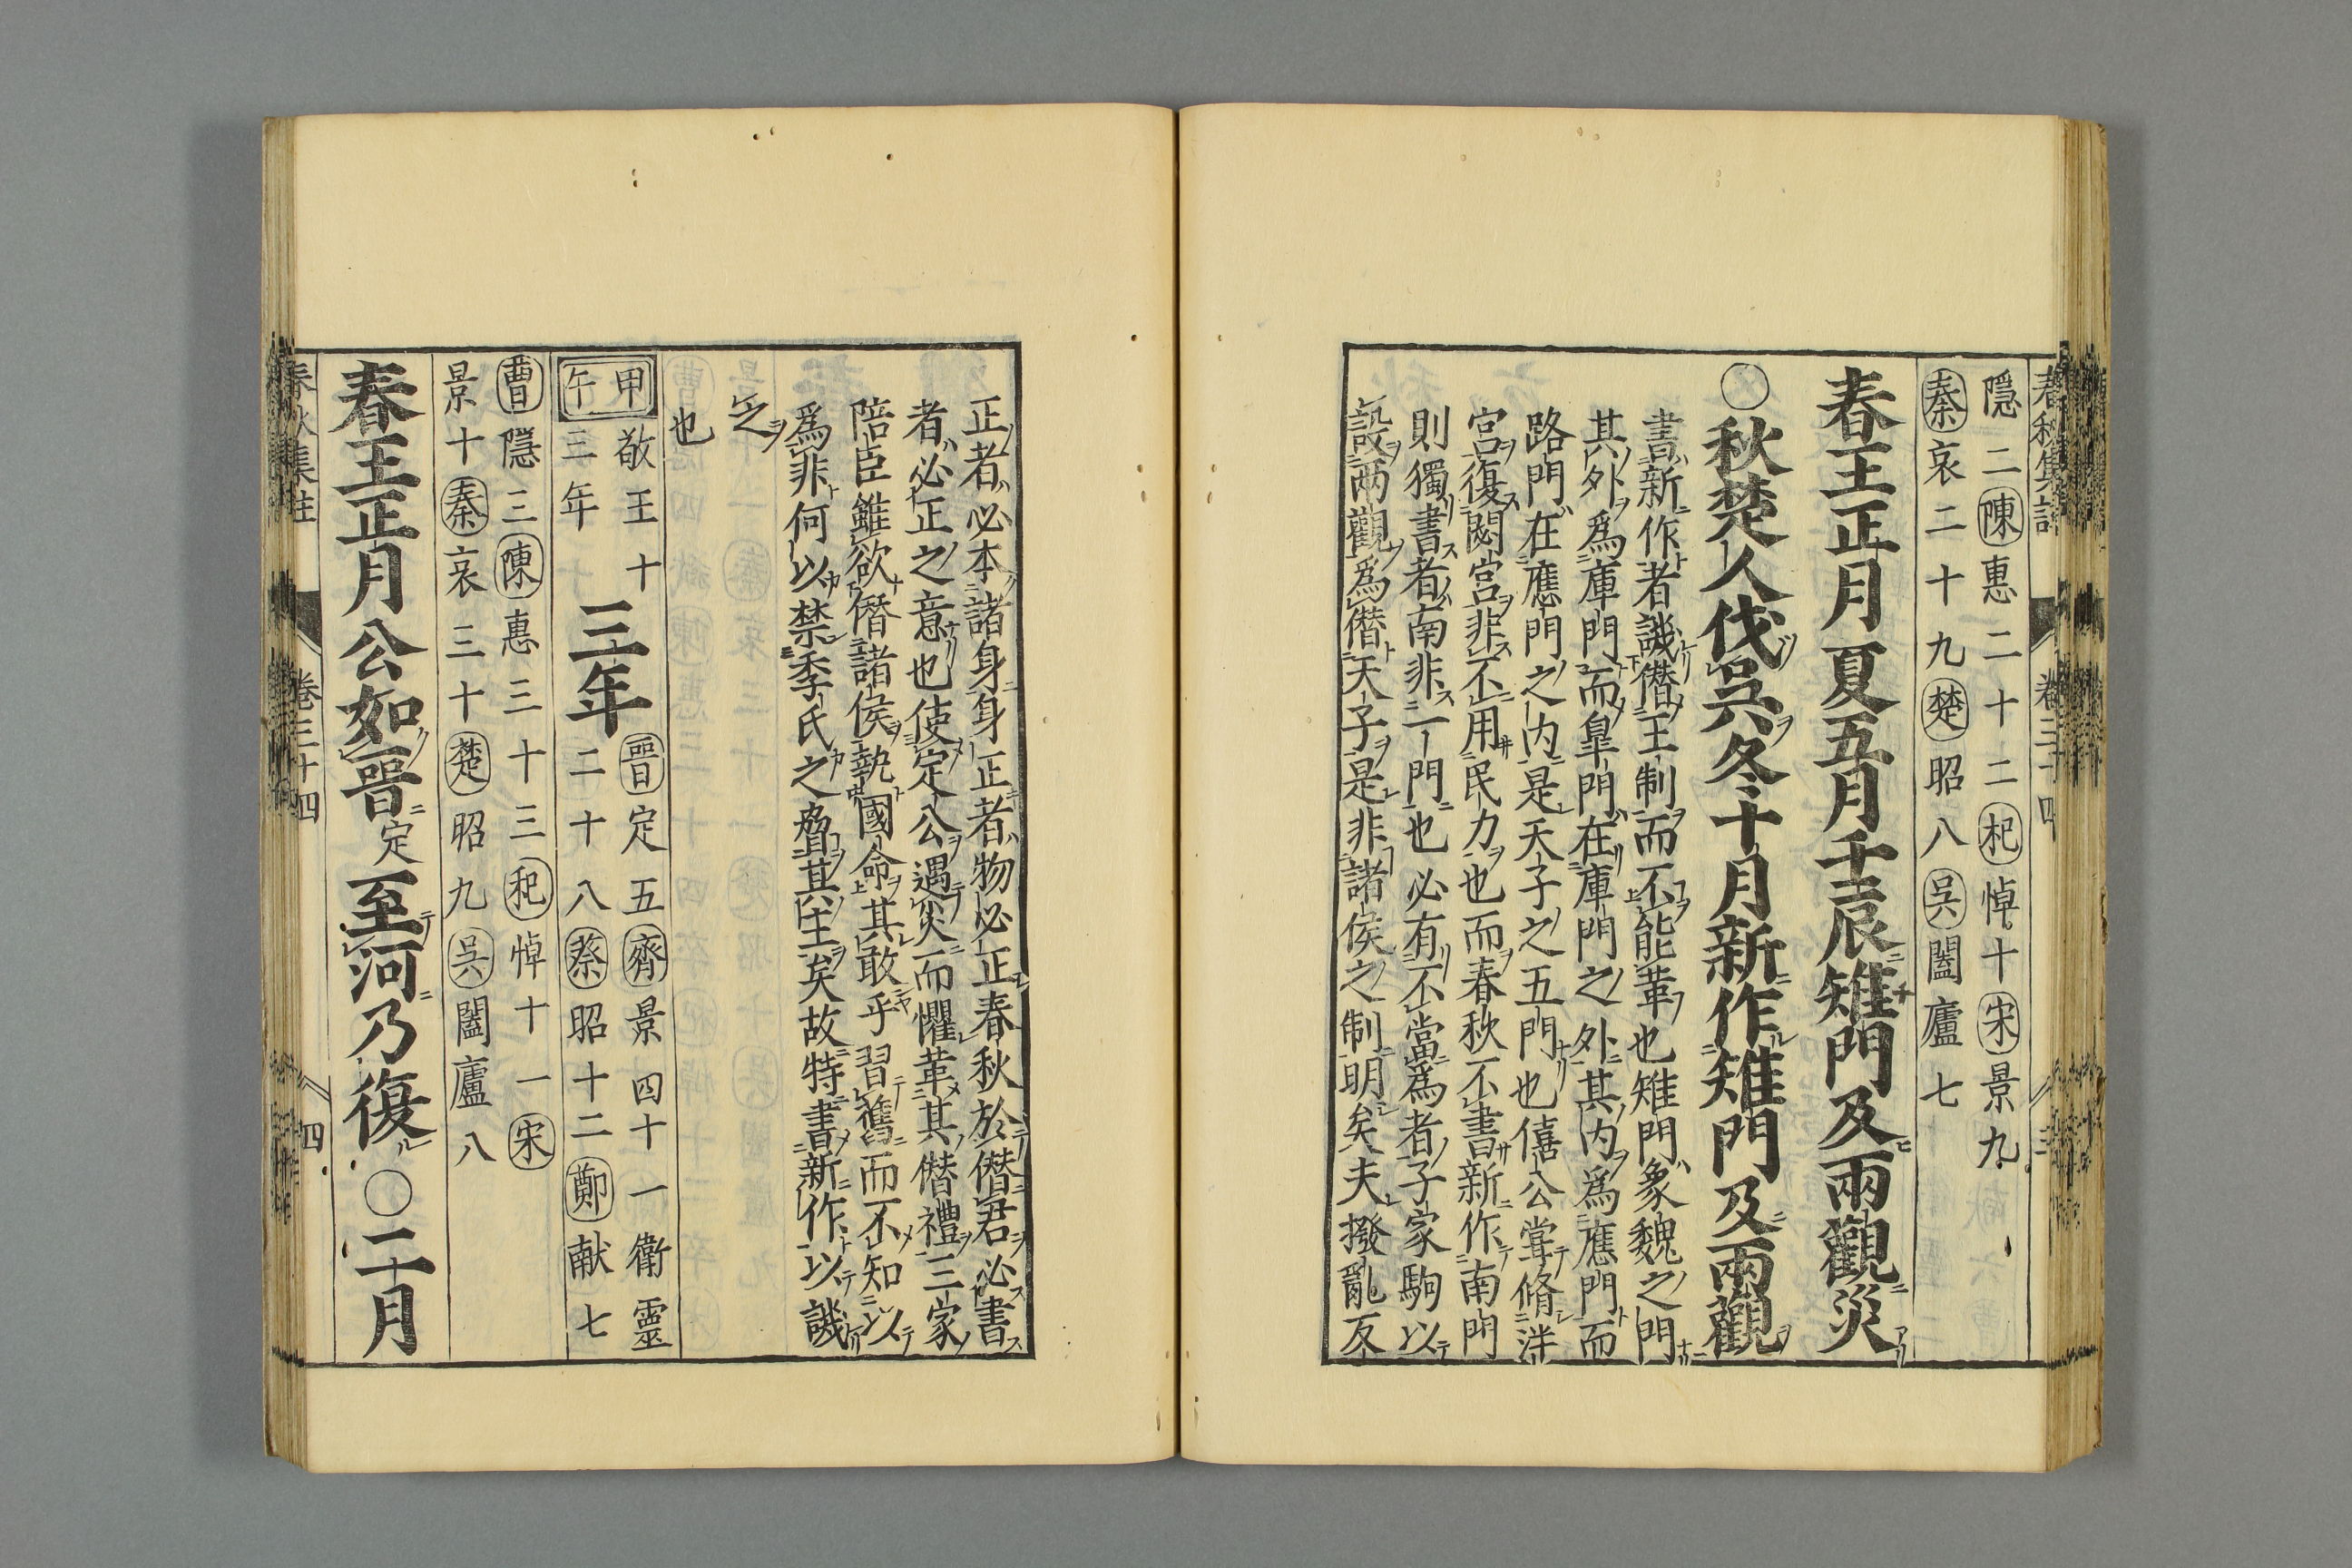 春秋集註 卷三十四
隱二陳惠二十二杞悼十宋景九
秦哀二十九楚昭八吳闔廬七
春王正月夏五月壬辰雉門及兩觀災
○秋楚人伐吳冬十月新作雉門及兩觀
書新作者譏僭王制而不能革也雉門象魏之門
其外爲庫門而臯門在庫門之外其内爲應門而
路門在應門之内是天子之五門也僖公甞脩泮
宮復閟宮非不用民力也而春秋不書新作南門
則獨書者南非一門也必有不當爲者子家駒以
設两觀爲僭天子是非諸侯之制明矣夫撥亂反
正者必本諸身身正者物必正春秋於僭君必書
者必正之意也使定公遇災而懼革其僭禮三家
陪臣雖欲僭諸侯執國命其敢乎習舊而不知以
爲非何以禁季氏之脅其主矣故特書新作以譏
之
也
甲午 敬王十三年 三年 晉定五齊景四十一衛靈
二十八蔡昭十二鄭献七
曹隱三陳惠三十三杞悼十一宋
景十秦哀三十楚昭九吳闔廬八
春王正月公如晉定至河乃復○二月
春秋集註 卷三十四 四